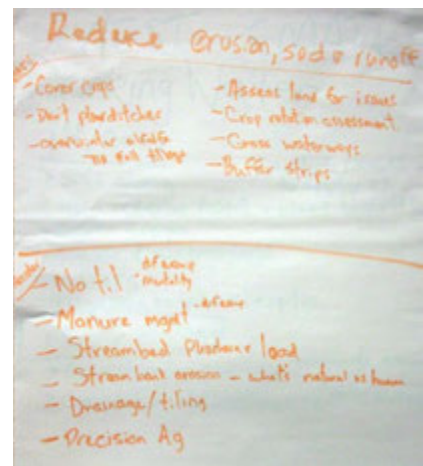 Reduce erosion, sed & runoff
- Cover crops
- Don't plow ditches
- overwinter alfalfa
no fall tillage
- Assess land for issues
- Crop rotation assessment
- Grass waterways
- Buffer strips
- No til
- Manure mgmt
- Streambed Phosphorus load
- Streambank erosion - what's natural vs human
- Drainage/tiling
- Precision Ag